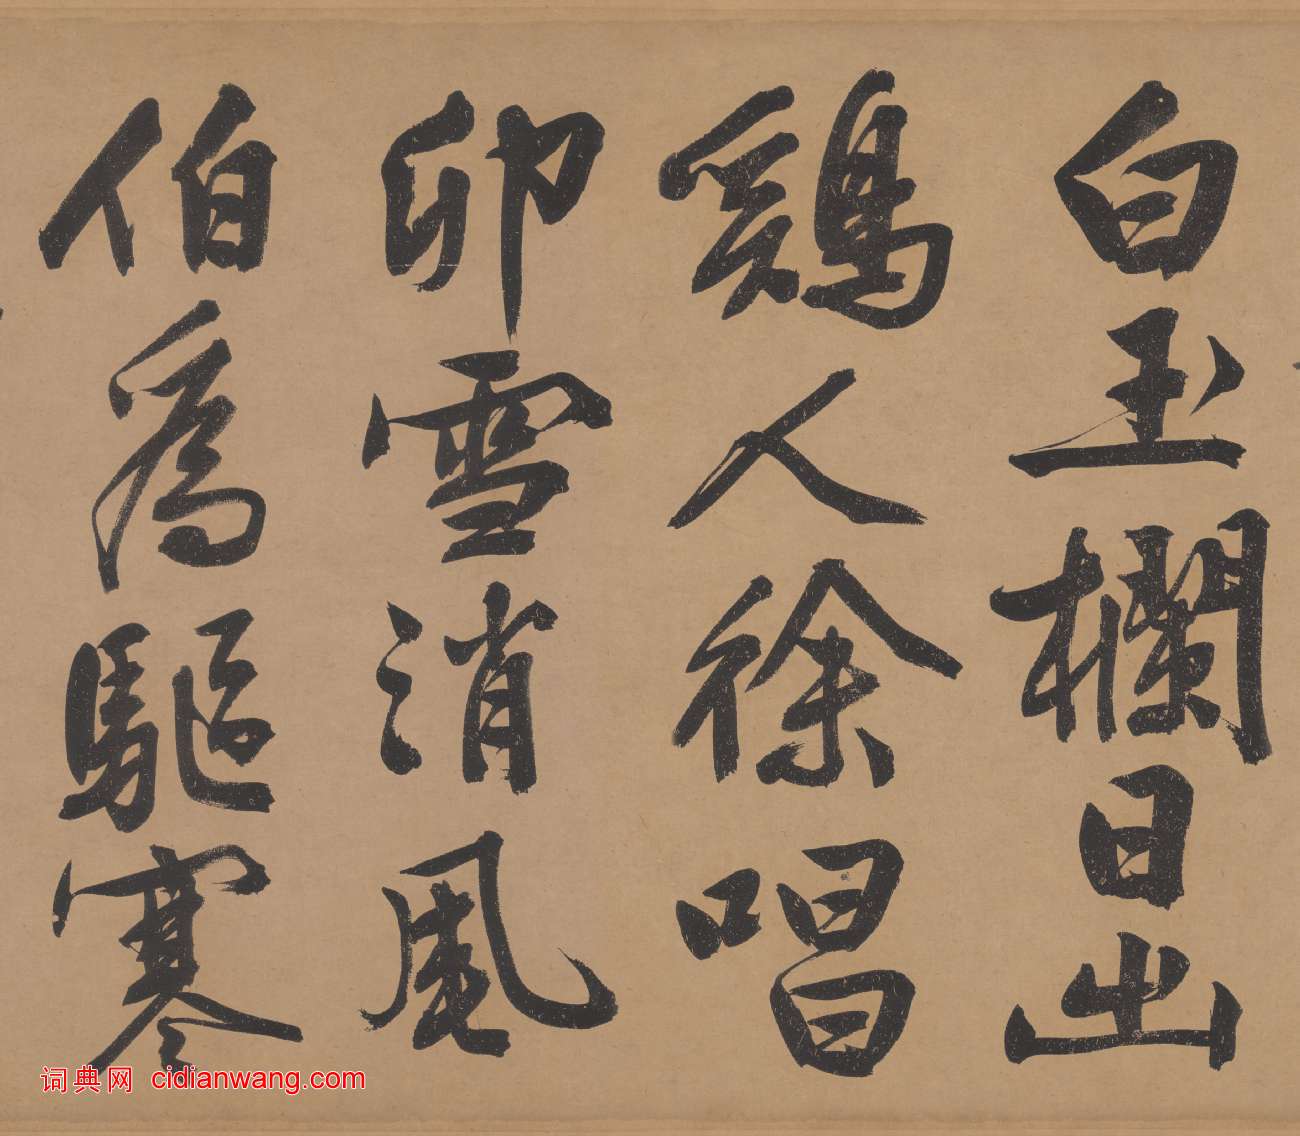 白玉欄日出
鷄人徐唱
卯雪消風
伯為驅寒
词典网 cidianwang.com